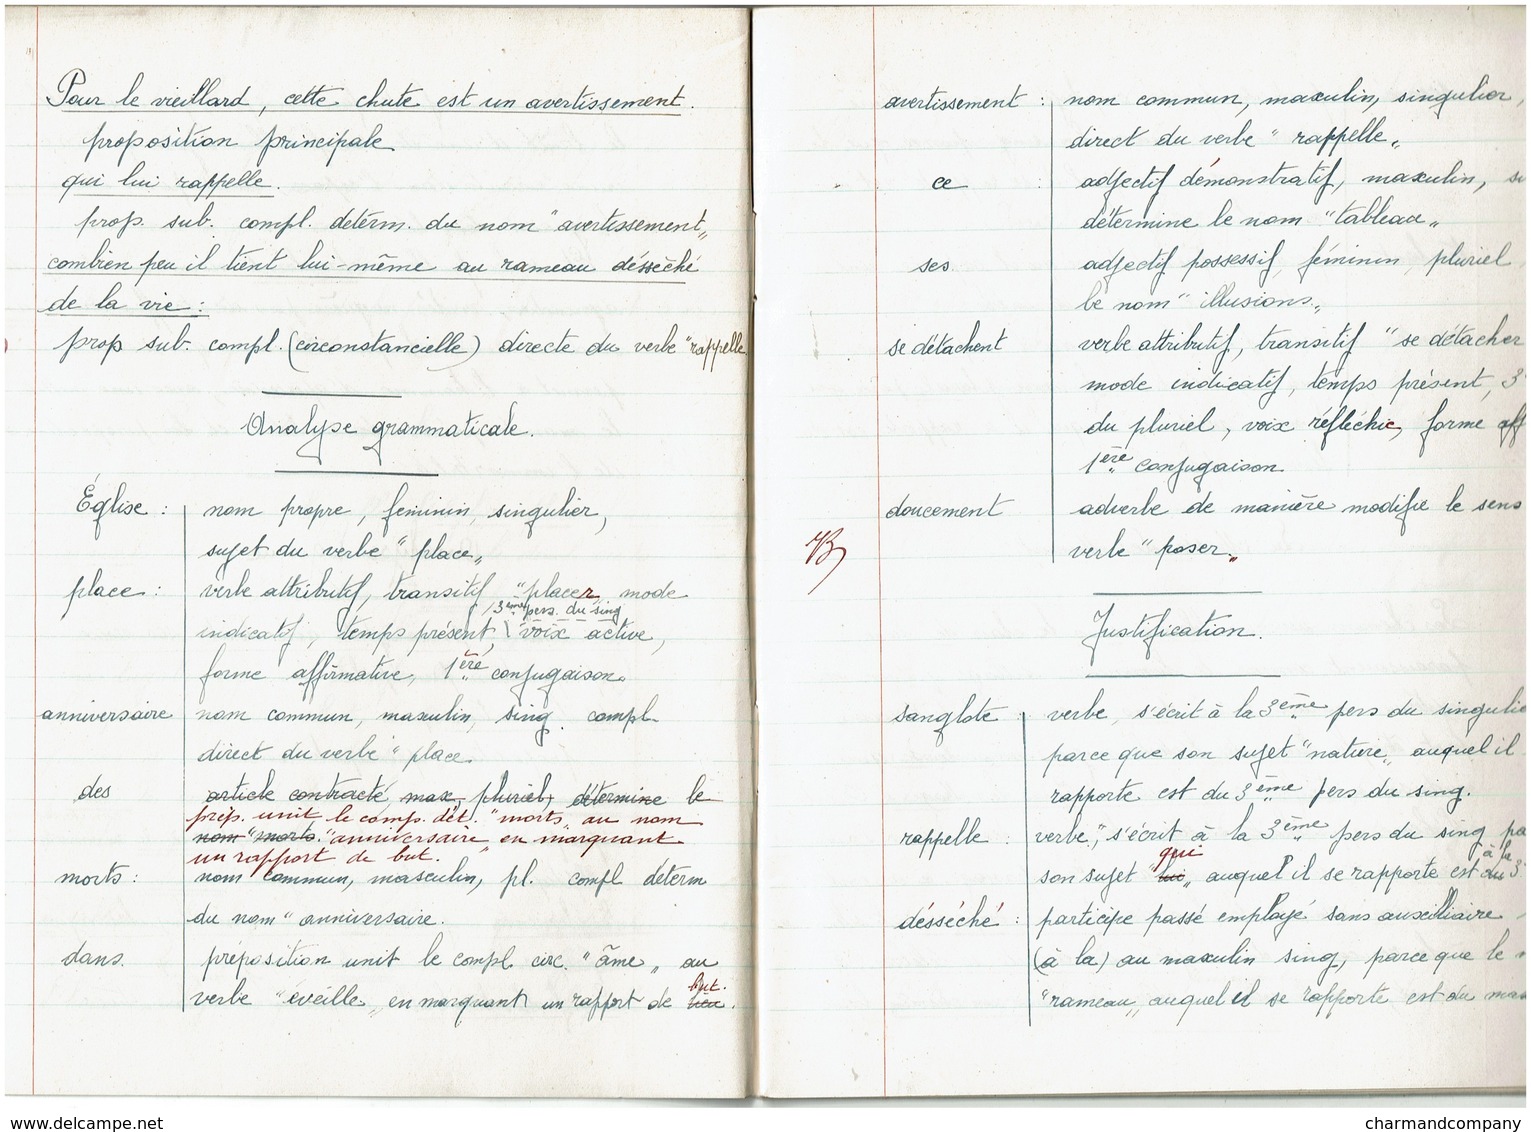 Pour le vieillard, cette chute est un avertissement.
proposition principale
qui lui rappelle.
prop. sub. compl. déterm. du nom "avertissement„
combien peu il tient lui-même au rameau désséché
de la vie :
prop sub. compl. (circonstancielle) directe du verbe "rappelle
Analyse grammaticale.
Église : nom propre, féminin, singulier,
sujet du verbe "place„
place : verbe attributif, transitif "placer, mode
, 3ème pers. du sing
indicatif, temps présent, voix active,
forme affirmative, 1ère conjugaison.
anniversaire nom commun, masculin, sing. compl.
direct du verbe "place.
des article contracté, mas, pluriel, détermine le
prép. unit le comp. dét. "morts au nom
nom "morts. "anniversaire„ en marquant
un rapport de but.
morts : nom commun, masculin, pl. compl déterm
du nom "anniversaire.
dans. préposition unit le compl. circ. "âme„ au
but.
verbe "éveille„ en marquant un rapport de lieu.
avertissement : nom commun, masculin, singulier,
direct du verbe "rappelle„
ce : adjectif démonstratif, masculin, si
détermine le nom "tableau„
ses. adjectif possessif, féminin, pluriel,
le nom "illusions„
se détachent verbe attributif, transitif "se détacher
mode indicatif, temps présent, 3
du pluriel, voix réfléchie, forme aff
1ère conjugaison
doucement adverbe de manière modifie le sens
verbe "poser„
B
Justification.
sanglote : verbe, s'écrit à la 3ème pers du singulie
parce que son sujet "nature„ auquel il
rapporte est du 3ème pers du sing.
rappelle : verbe, s'écrit à la 3ème pers du sing pa
qui à la
son sujet "lui„ auquel il se rapporte est du 3
désséché : participe passé employé sans auxiliaire
(à la) au masculin sing, parce que le
"rameau„ auquel il se rapporte est du mas
charmandcompany
delcampe.net